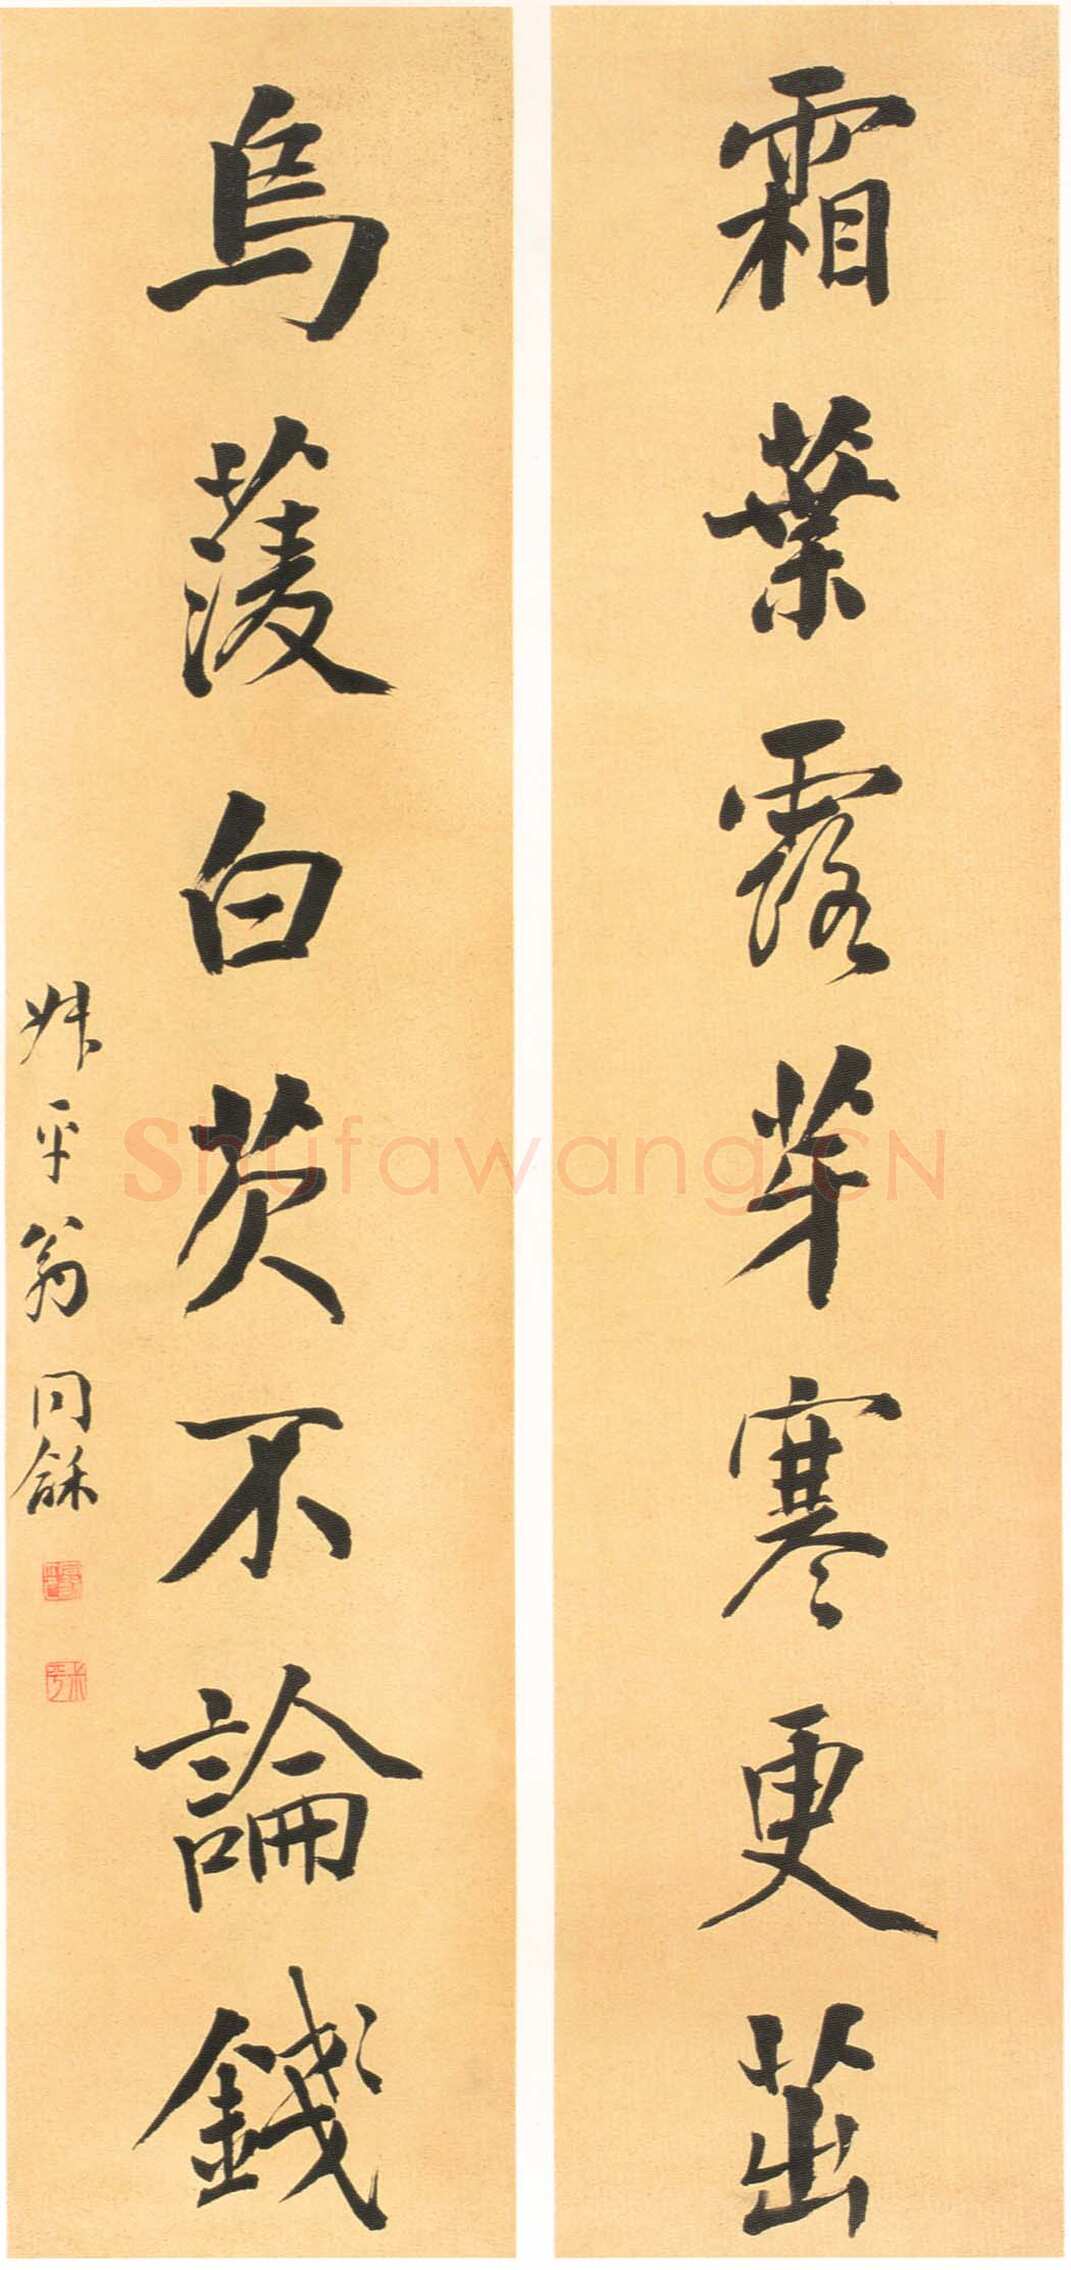 霜葉露芽寒更茁
烏菱白芡不論錢
叔平翁同龢
Shufawang.CN